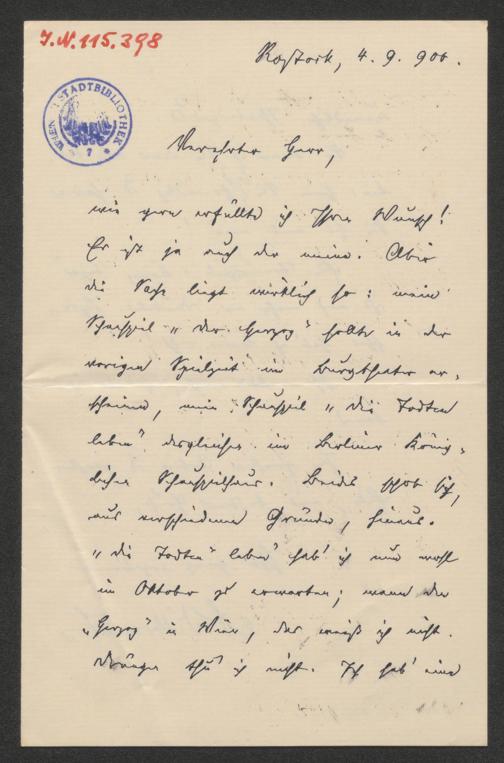 J.N. 115.398
WIENER STADTBIBLIOTHEK
Rostock, 4. 9. 900.
Verehrter Herr,
wie gern erfüllte ich Ihren Wunsch!
Er ist ja auch der meine. Aber
die Sache liegt wirklich so: mein
Schauspiel „Der Herzog" sollte in der
vorigen Spielzeit im Burgtheater er-
scheinen, mein Schauspiel „Die Todten
leben" desgleichen im Berliner König-
lichen Schauspielhaus. Beides schob sich,
aus verschiedenen Gründen, hinaus.
„Die Todten leben" hab' ich nun wohl
im Oktober zu erwarten; wann den
„Herzog" in Wien, das weiß ich nicht.
Drängen thu' ich nicht. Ich hab' eine